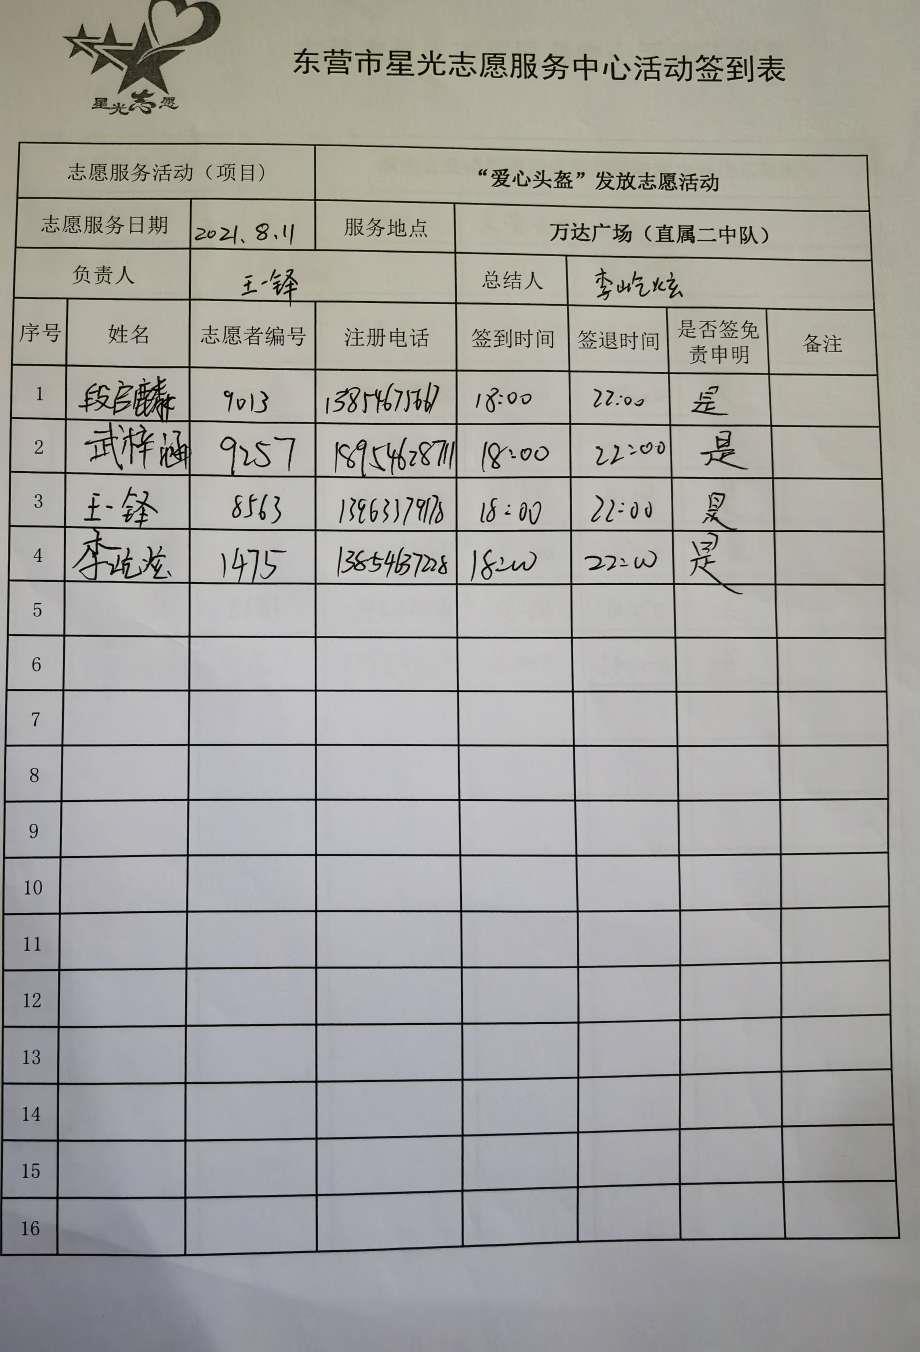 星光志愿
东营市星光志愿服务中心活动签到表
志愿服务活动（项目） “爱心头盔”发放志愿活动
志愿服务日期 2021.8.11 服务地点 万达广场（直属二中队）
负责人 王一铎 总结人 李屹炫
序号 姓名 志愿者编号 注册电话 签到时间 签退时间 是否签免责申明 备注
1 9013 18:00 22:00 是
2 武梓涵 9257 18954628711 18:00 22:00 是
3 王一铎 8563 13963379178 18:00 22:00 是
4 李屹炫 1475 13854637228 18:00 22:00 是
5
6
7
8
9
10
11
12
13
14
15
16